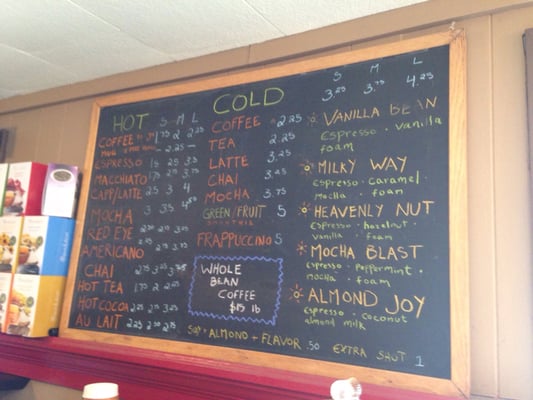 HOT S M L
COFFEE 1.75 2 2.25
ESPRESSO
MACCHIATO
CAPP/LATTE 2.5 3 4
MOCHA 3 3.5 4.50
RED EYE
AMERICANO
CHAI 2.75 3.25 3.75
HOT TEA 1.75 2 2.25
HOT COCOA 2.25 2.5 2.75
AU LAIT 2.25 2.50 2.75
COLD
COFFEE 2.25
TEA 2.25
LATTE 3.25
CHAI 3.25
MOCHA 3.75
GREEN/FRUIT 5
SMOOTHIE
FRAPPUCCINO 5
WHOLE
BEAN
COFFEE
$15 lb
S M L
3.25 3.75 4.25
VANILLA BEAN
ESPRESSO • vanilla
foam
MILKY WAY
espresso • caramel •
mocha • foam
HEAVENLY NUT
espresso • hazelnut
vanilla • foam
MOCHA BLAST
espresso • peppermint •
mocha • foam
ALMOND JOY
Espresso • coconut
almond milk
SOY • ALMOND + FLAVOR .50
EXTRA SHOT 1